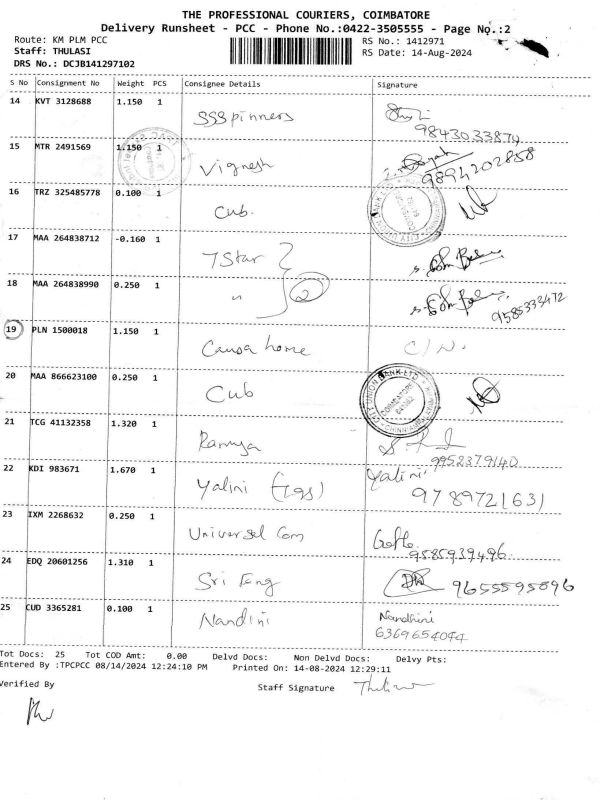 THE PROFESSIONAL COURIERS, COIMBATORE
Delivery Runsheet - PCC - Phone No.:0422-3505555 - Page No.:2
Route: KM PLM PCC RS No.: 1412971
Staff: THULASI RS Date: 14-Aug-2024
DRS No.: DCJB141297102
S No Consignment No Weight PCS Consignee Details Signature
14 KVT 3128688 1.150 1 SSSpinners
9843033874
15 MTR 2491569 1.150 1 Vignesh
9894202858
16 TRZ 325485778 0.100 1 Cub.
17 MAA 264838712 -0.160 1 7 Star
18 MAA 264838990 0.250 1 " 2
9585333472
19 PLN 1500018 1.150 1 home C/N.
20 MAA 866623100 0.250 1 Cub
CITY UNION BANK LTD
COIMBATORE
21 TCG 41132358 1.320 1 Ramya
9952379140
22 KDI 983671 1.670 1 Yalini (Tgs) Yalini
9789721631
23 IXM 2268632 0.250 1 Universal Com
9585939496
24 EDQ 20601256 1.310 1 Sri Eng 9655595896
25 CUD 3365281 0.100 1 Nandini Nandhini
6369654044
Tot Docs: 25 Tot COD Amt: 0.00 Delvd Docs: Non Delvd Docs: Delvy Pts:
Entered By :TPCPCC 08/14/2024 12:24:10 PM Printed On: 14-08-2024 12:29:11
Verified By Staff Signature